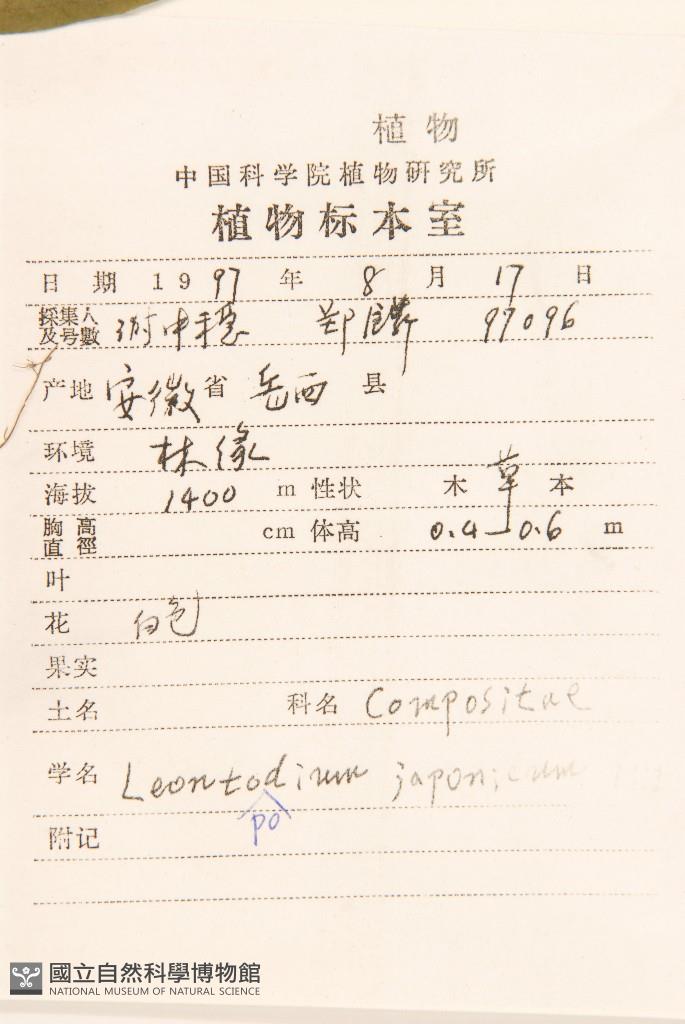 植物
中国科学院植物研究所
植物标本室
日期 1997 年 8 月 17 日
採集人及号數 谢中稳 郑麟 97096
产地 安徽 省 岳西 县
环境 林缘
海拔 1400 m 性状 木 草 本
胸高直徑 cm 体高 0.4—0.6 m
叶
花 白色
果实
土名 科名 Compositae
学名 Leontodium japonicum
po
附记
國立自然科學博物館
NATIONAL MUSEUM OF NATURAL SCIENCE